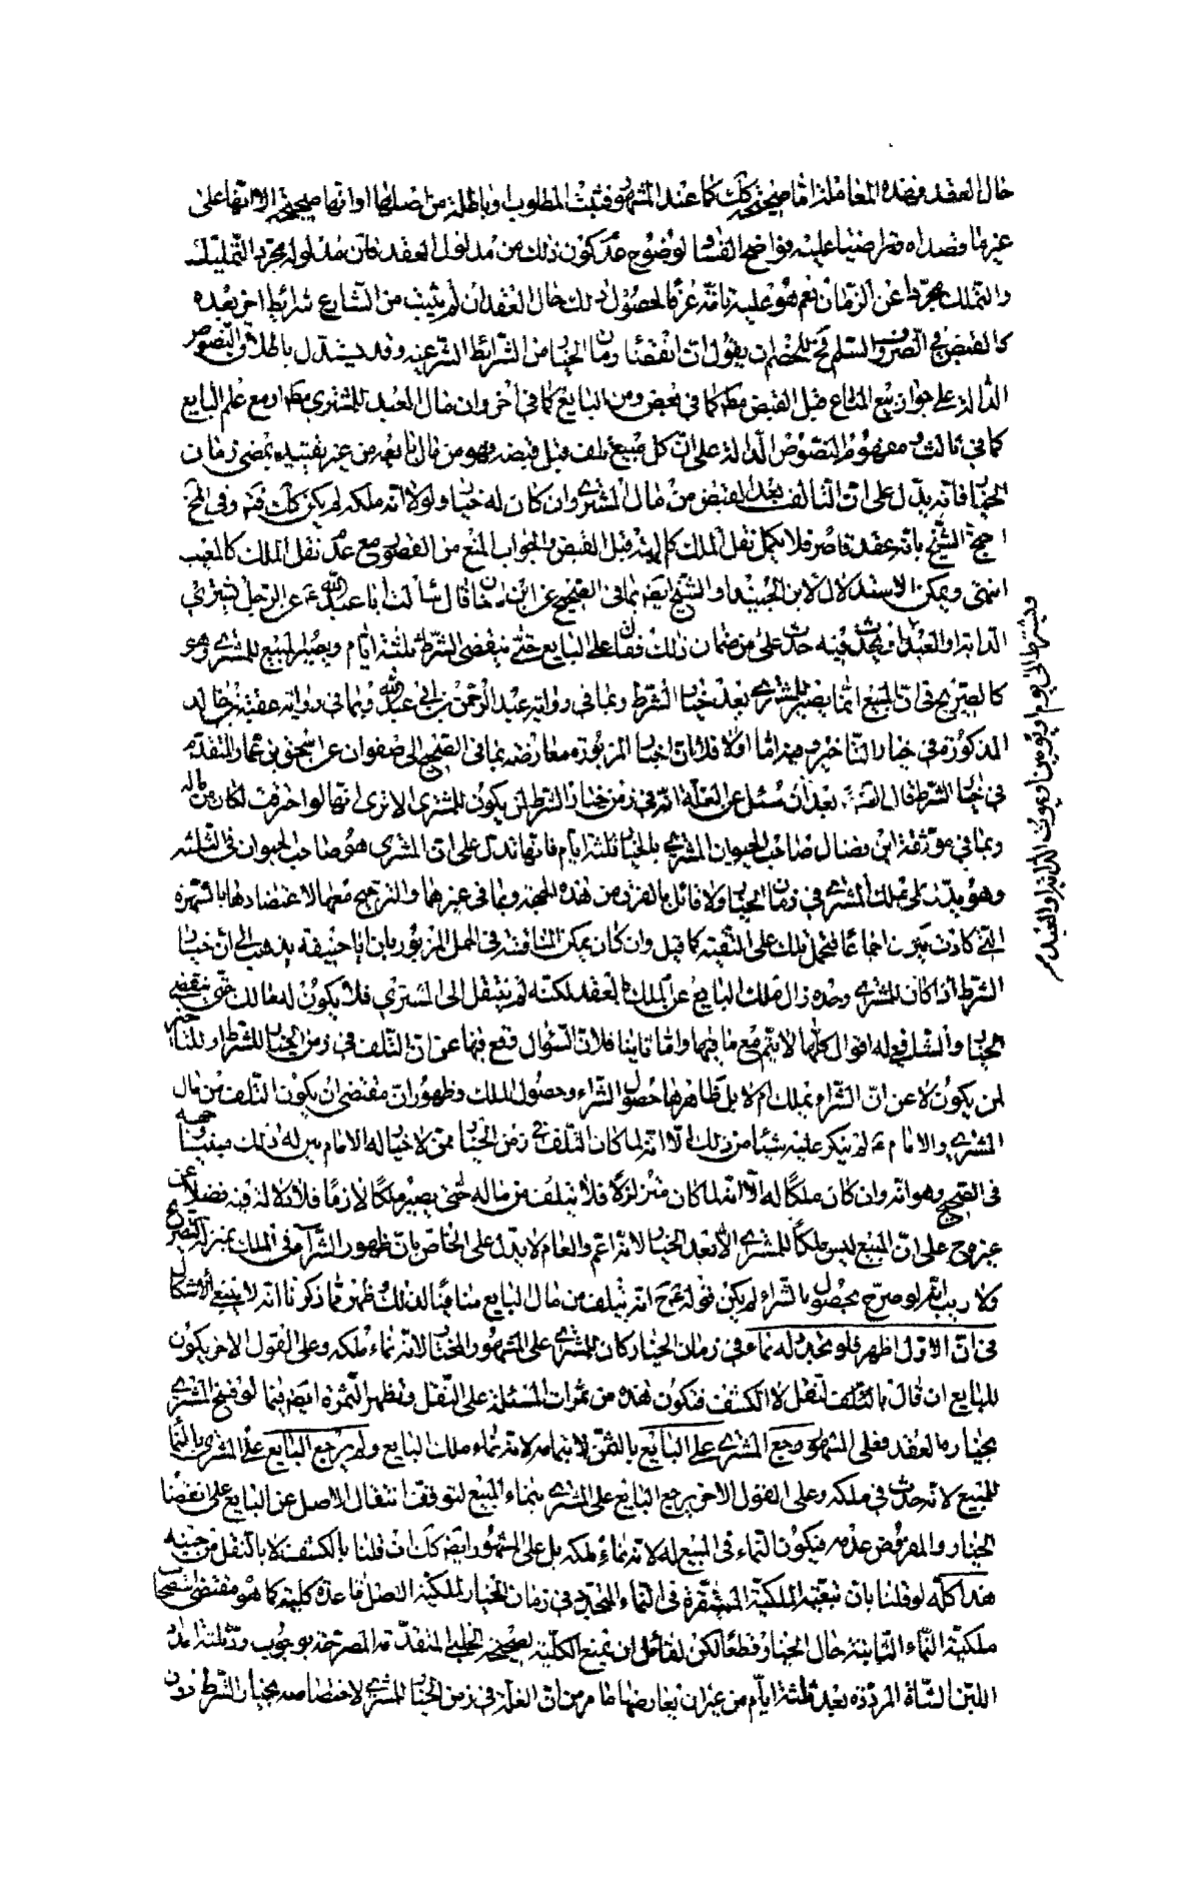 حال العقد فهذه المعاملة اما صحيحة كك كما عند المشهور فثبت المطلوب او باطلة من اصلها او انها صحيحة الا انها على
غير ما قصداه وتراضيا عليه وواضح الفساد لوضوح عدم كون ذلك من مدلول العقد فان مدلوله مجرد التمليك
والتملك مجردا عن الزمان نعم هو علية تامة عرفا لحصول ذلك حال العقد ان لم يثبت من الشارع شرائط اخر بعده
كالقبض في الصرف والسلم فح للخصم ان يقول ان انقضاء زمان الخيار من الشرائط الشرعية وقد يستدل باطلاق النصوص
الدالة على جواز بيع المتاع قبل القبض مط كما في بعض ومن البايع كما في اخر وان مال العبد للمشتري مط او مع علم البايع
كما في ثالث و مفهوم النصوص الدالة على ان كل مبيع تلف قبل قبضه فهو من مال بايعه من غير تقييده بمضي زمان
الخيار فانه يدل على ان التالف بعد القبض من مال المشتري وان كان له خيار ولولا انه ملكه لم يكن كك فت وفي المخ
احتج الشيخ بانه عقد قاصر فلا يكمل نقل الملك كالهبة قبل القبض والجواب المنع من القصور مع عدم نقل الملك كالمعيب
انتهى ويمكن الاستدلال لابن الجنيد او الشيخ ايضا بما في الصحيح عن ابن سنان قال سألت ابا عبد الله ع عن الرجل يشتري
الدابة او العبد فيحدث فيه حدث على من ضمان ذلك فقال على البايع حتى ينقضي الشرط ثلثة ايام ويصير المبيع للمشتري وهو
كالصريح في ان المبيع انما يصير للمشتري بعد خيار الشرط وبما في رواية عبد الرحمن بن ابي عبد الله وبما في رواية عقبة بن خالد
المذكورة في خيار التأخير وفيه اما اولا فلان الاخبار المزبورة معارضة بما في الصحيح الى صفوان عن اسحق بن عمار المتقدمة
في خيار الشرط قال الصادق بعد ان سئل عن الغلة انه في زمن خيار الشرط لمن يكون للمشتري الا ترى انها لو احرقت لكان من ماله
وبما في موثقة ابن فضال صاحب الحيوان المشتري بالخيار ثلثة ايام فانها تدل على ان المشتري هو صاحب الحيوان في الثلثة
وهو يدل على تملك المشتري في زمان الخيار ولا قائل بالفرق من هذه الجهة وبما في غيرها والترجيح معها لاعتضادها بالشهرة
التي كادت تكون اجماعا فتحمل تلك على التقية كما قيل وان كان يمكن المناقشة في الحمل المزبور بان ابا حنيفة يذهب الى ان خيار
الشرط اذا كان للمشتري وحده زال ملك البايع عن الملك بالعقد لكنه لم ينتقل الى المشتري فلا يكون له مالك حتى ينقضي
لمن يكون لا عن ان الشراء يملك ام لا بل ظاهرها حصول الشراء وحصول الملك وظهور ان مقتضى ان يكون التلف من مال
المشتري والامام ع لم ينكر عليه شيئا من ذلك الا انه لما كان التلف في زمن الخيار ممن لا خيار له الامام بين له ذلك مبينا وجهه
في الصحيح وهو انه وان كان ملكا له الا انه لما كان متزلزلا فلا يتلف من ماله حتى يصير ملكا لازما فلا دلالة فيه فضلا عن
غيره على ان المبيع ليس ملكا للمشتري الا بعد الخيار لانه اعم والعام لا يدل على الخاص بان ظهور الشراء في الملك بمنزلة التصريح
ولا ريب انه لو صرح بحصول بالشراء لم يكن قوله ع ح انه يتلف من مال البايع منافيا لذلك فظهر مما ذكرنا انه لا ينبغي الاشكال
في ان الاول اظهر فلو تجدد له نماء في زمان الخيار كان للمشتري على المشهور المختار لانه نماء ملكه وعلى القول الاخر يكون
للبايع ان قال بالتلف لنقل لا الكشف فتكون هذه من ثمرات المسئلة على النقل وتظهر الثمرة ايضا فيما لو فسخ المشتري
بخياره العقد فعلى المشهور رجع المشتري على البايع بالثمن لا بنمائه لانه نماء ملك البايع ولم يرجع البايع على المشتري بالنماء
للمبيع لانه حدث في ملكه وعلى القول الاخر يرجع البايع على المشتري بنماء المبيع لتوقف انتقال الاصل عن البايع على انقضاء
الخيار والمفروض عدمه فيكون النماء في المبيع له لانه نماء ملكه بل على المشهور ايضا كك ان قلنا بالكشف لا بالنقل من حينه
هذا كله لو قلنا بان تبعية الملكية المستقرة في النماء المتجدد في زمان الخيار لملكية الاصل قاعدة كلية كما هو مقتضى استصحاب
ملكية النماء الثابتة حال الخيار قطعا لكن لقائل ان يمنع الكلية لصحيحة الحلبي المتقدمة المصرحة بوجوب رد ثلثة امداد
اللبن الشاة المردودة بعد ثلثة ايام من غير ان يعارضها ما مر من ان الغلة في زمن الخيار للمشتري لاختصاصه بخيار الشرط دون
ويشترط الى يوم او يومين فيموت الدابة او العبد